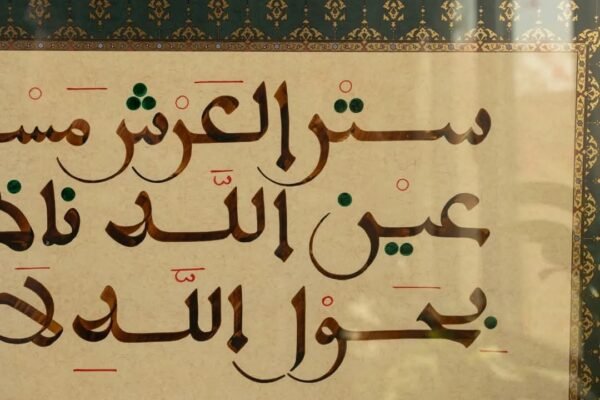 ستر العرش مسـ
عين الله ناظـ
بحول الله لا